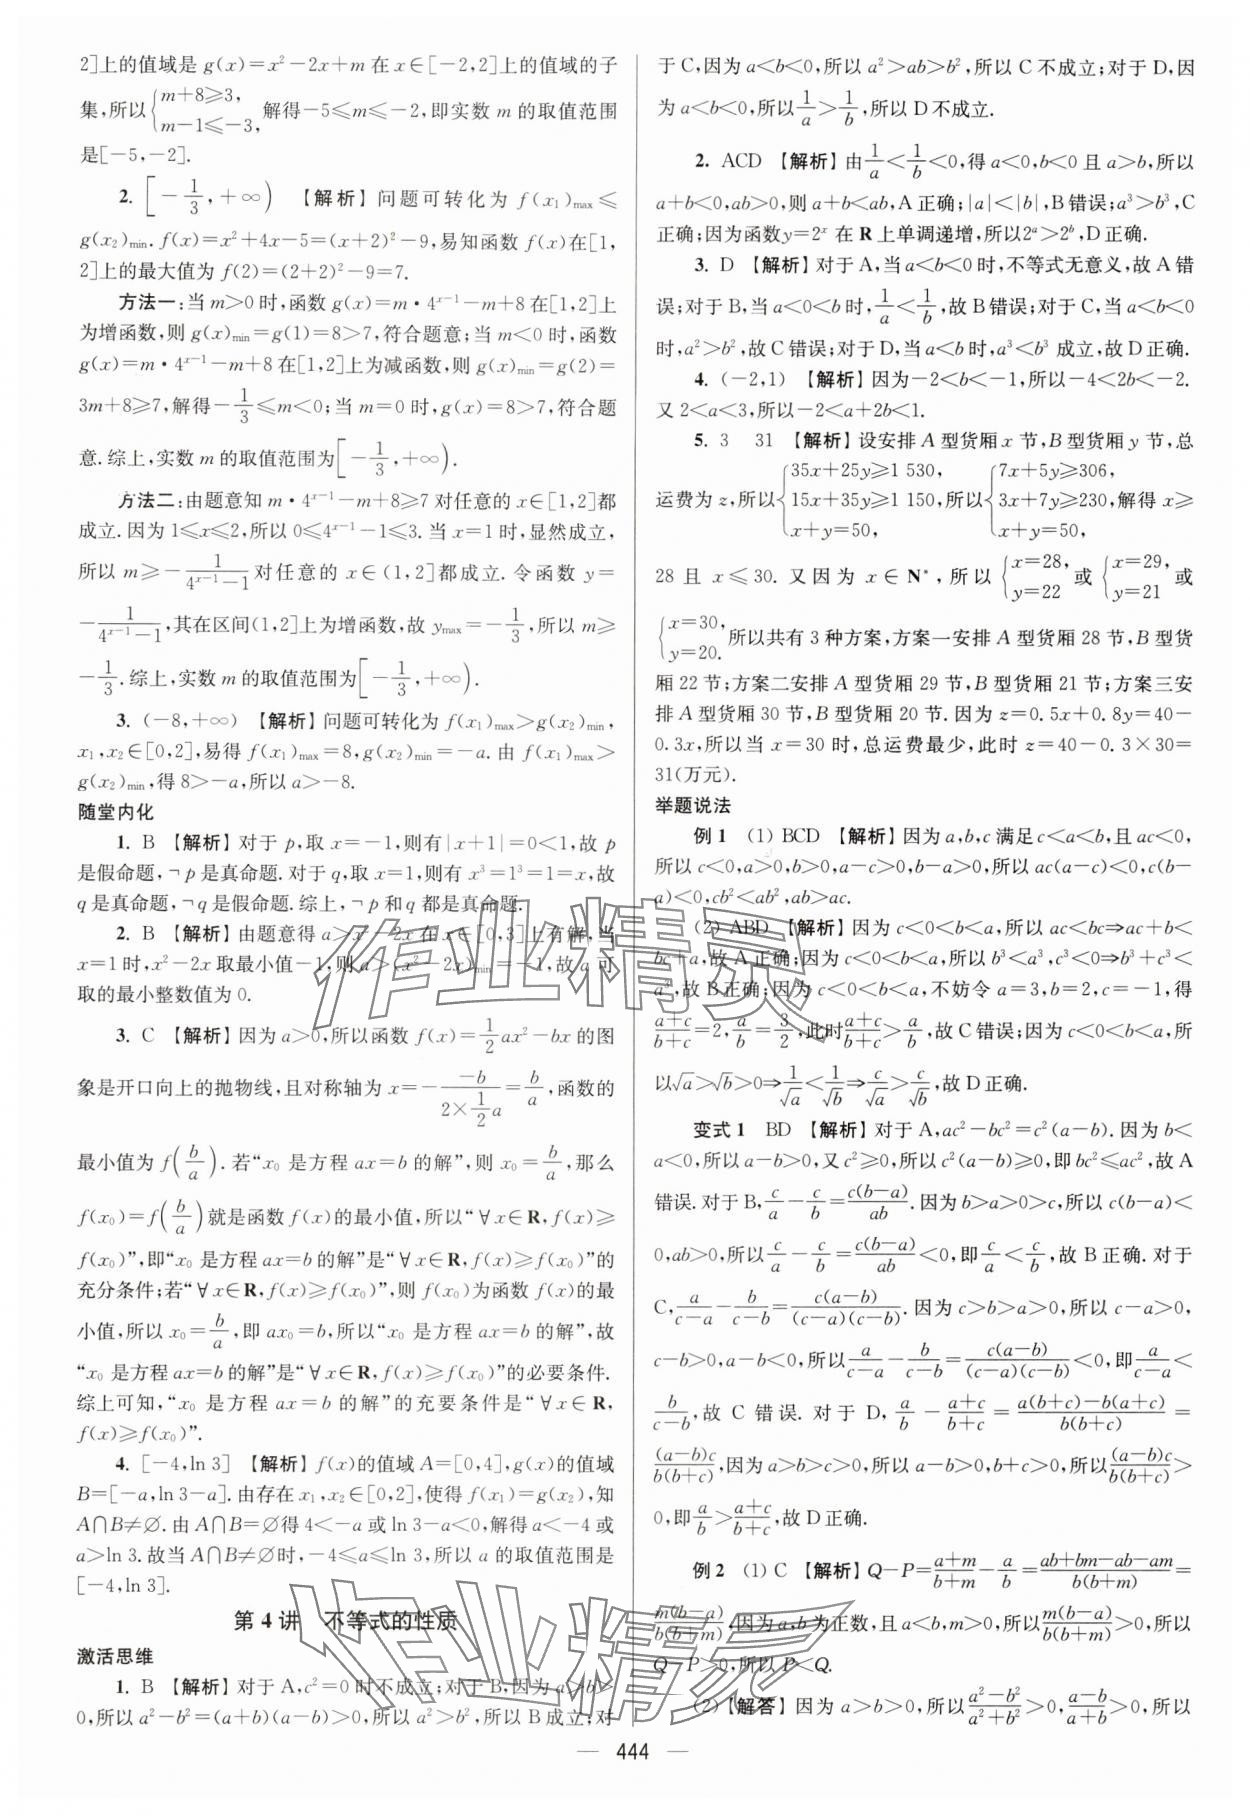 2]上的值域是 g(x)=x²-2x+m 在 x∈[-2,2]上的值域的子
集,所以{m+8≥3, m-1≤-3, 解得-5≤m≤-2,即实数 m 的取值范围
是[-5,-2].
2. [-1/3,+∞) 【解析】问题可转化为 f(x₁)max≤
g(x₂)min.f(x)=x²+4x-5=(x+2)²-9,易知函数 f(x)在[1,
2]上的最大值为 f(2)=(2+2)²-9=7.
方法一:当 m>0 时,函数 g(x)=m·4ˣ⁻¹-m+8 在[1,2]上
为增函数,则 g(x)min=g(1)=8>7,符合题意;当 m<0 时,函数
g(x)=m·4ˣ⁻¹-m+8 在[1,2]上为减函数,则 g(x)min=g(2)=
3m+8≥7,解得-1/3≤m<0;当 m=0 时,g(x)=8>7,符合题
意.综上,实数 m 的取值范围为[-1/3,+∞).
方法二:由题意知 m·4ˣ⁻¹-m+8≥7 对任意的 x∈[1,2]都
成立.因为 1≤x≤2,所以 0≤4ˣ⁻¹-1≤3.当 x=1 时,显然成立,
所以 m≥-1/(4ˣ⁻¹-1)对任意的 x∈(1,2]都成立.令函数 y=
-1/(4ˣ⁻¹-1),其在区间(1,2]上为增函数,故 ymax=-1/3,所以 m≥
-1/3.综上,实数 m 的取值范围为[-1/3,+∞).
3. (-8,+∞) 【解析】问题可转化为 f(x₁)max>g(x₂)min,
x₁,x₂∈[0,2],易得 f(x₁)max=8,g(x₂)min=-a.由 f(x₁)max>
g(x₂)min,得 8>-a,所以 a>-8.
随堂内化
1. B 【解析】对于 p,取 x=-1,则有|x+1|=0<1,故 p
是假命题,¬p 是真命题.对于 q,取 x=1,则有 x³=1³=1=x,故
q 是真命题,¬q 是假命题.综上,¬p 和 q 都是真命题.
2. B 【解析】由题意得 a>x²-2x 在 x∈[0,3]上有解,当
x=1 时,x²-2x 取最小值-1,则 a>(x²-2x)min=-1,故 a 可
取的最小整数值为 0.
3. C 【解析】因为 a>0,所以函数 f(x)=1/2ax²-bx 的图
象是开口向上的抛物线,且对称轴为 x=-(-b)/(2×1/2a)=b/a,函数的
最小值为 f(b/a).若“x₀ 是方程 ax=b 的解”,则 x₀=b/a,那么
f(x₀)=f(b/a)就是函数 f(x)的最小值,所以“∀x∈R,f(x)≥
f(x₀)”,即“x₀ 是方程 ax=b 的解”是“∀x∈R,f(x)≥f(x₀)”的
充分条件;若“∀x∈R,f(x)≥f(x₀)”,则 f(x₀)为函数 f(x)的最
小值,所以 x₀=b/a,即 ax₀=b,所以“x₀ 是方程 ax=b 的解”,故
“x₀ 是方程 ax=b 的解”是“∀x∈R,f(x)≥f(x₀)”的必要条件.
综上可知,“x₀ 是方程 ax=b 的解”的充要条件是“∀x∈R,
f(x)≥f(x₀)”.
4. [-4,ln 3] 【解析】f(x)的值域 A=[0,4],g(x)的值域
B=[-a,ln 3-a].由存在 x₁,x₂∈[0,2],使得 f(x₁)=g(x₂),知
A∩B≠∅.由 A∩B=∅得 4<-a 或 ln 3-a<0,解得 a<-4 或
a>ln 3.故当 A∩B≠∅时,-4≤a≤ln 3,所以 a 的取值范围是
[-4,ln 3].
第 4 讲 不等式的性质
激活思维
1. B 【解析】对于 A,c²=0 时不成立;对于 B,因为 a>b>
0,所以 a²-b²=(a+b)(a-b)>0,所以 a²>b²,所以 B 成立;对
于 C,因为 a<b<0,所以 a²>ab>b²,所以 C 不成立;对于 D,因
为 a<b<0,所以1/a>1/b,所以 D 不成立.
2. ACD 【解析】由1/a<1/b<0,得 a<0,b<0 且 a>b,所以
a+b<0,ab>0,则 a+b<ab,A 正确;|a|<|b|,B 错误;a³>b³,C
正确;因为函数 y=2ˣ 在 R 上单调递增,所以2ᵃ>2ᵇ,D 正确.
3. D 【解析】对于 A,当 a<b<0 时,不等式无意义,故 A 错
误;对于 B,当 a<0<b 时,1/a<1/b,故 B 错误;对于 C,当 a<b<0
时,a²>b²,故 C 错误;对于 D,当 a<b 时,a³<b³ 成立,故 D 正确.
4. (-2,1) 【解析】因为-2<b<-1,所以-4<2b<-2.
又 2<a<3,所以-2<a+2b<1.
5. 3 31 【解析】设安排 A 型货厢 x 节,B 型货厢 y 节,总
运费为 z,所以{35x+25y≥1 530, 15x+35y≥1 150, x+y=50,所以{7x+5y≥306, 3x+7y≥230, x+y=50,解得 x≥
28 且 x≤30.又因为 x∈N*,所以{x=28, y=22 或{x=29, y=21 或
{x=30, y=20.所以共有 3 种方案,方案一安排 A 型货厢 28 节,B 型货
厢 22 节;方案二安排 A 型货厢 29 节,B 型货厢 21 节;方案三安
排 A 型货厢 30 节,B 型货厢 20 节.因为 z=0.5x+0.8y=40-
0.3x,所以当 x=30 时,总运费最少,此时 z=40-0.3×30=
31(万元).
举题说法
例 1 (1) BCD 【解析】因为 a,b,c 满足 c<a<b,且 ac<0,
所以 c<0,a>0,b>0,a-c>0,b-a>0,所以 ac(a-c)<0,c(b-
a)<0,cb²<ab²,ab>ac.
(2) ABD 【解析】因为 c<0<b<a,所以 ac<bc⇒ac+b<
bc+a,故 A 正确;因为 c<0<b<a,所以 b³<a³,c³<0⇒b³+c³<
a³,故 B 正确;因为 c<0<b<a,不妨令 a=3,b=2,c=-1,得
(a+c)/(b+c)=2,a/b=3/2,此时(a+c)/(b+c)>a/b,故 C 错误;因为 c<0<b<a,所
以√a>√b>0⇒1/√a<1/√b⇒c/√a>c/√b,故 D 正确.
变式 1 BD 【解析】对于 A,ac²-bc²=c²(a-b).因为 b<
a<0,所以 a-b>0,又 c²≥0,所以 c²(a-b)≥0,即 bc²≤ac²,故 A
错误.对于 B,c/a-c/b=c(b-a)/ab.因为 b>a>0>c,所以 c(b-a)<
0,ab>0,所以c/a-c/b=c(b-a)/ab<0,即c/a<c/b,故 B 正确.对于
C,a/(c-a)-b/(c-b)=c(a-b)/(c-a)(c-b).因为 c>b>a>0,所以 c-a>0,
c-b>0,a-b<0,所以a/(c-a)-b/(c-b)=c(a-b)/(c-a)(c-b)<0,即a/(c-a)<
b/(c-b),故 C 错误.对于 D,a/b-(a+c)/(b+c)=[a(b+c)-b(a+c)]/b(b+c)=
(a-b)c/b(b+c),因为 a>b>c>0,所以 a-b>0,b+c>0,所以(a-b)c/b(b+c)>
0,即a/b>(a+c)/(b+c),故 D 正确.
例 2 (1) C 【解析】Q-P=(a+m)/(b+m)-a/b=(ab+bm-ab-am)/b(b+m)=
m(b-a)/b(b+m),因为 a,b 为正数,且 a<b,m>0,所以m(b-a)/b(b+m)>0,所以
Q-P>0,所以 P<Q.
(2)【解答】因为 a>b>0,所以(a²-b²)/(a²+b²)>0,(a-b)/(a+b)>0,所以
— 444 —
作业精灵
作业精灵